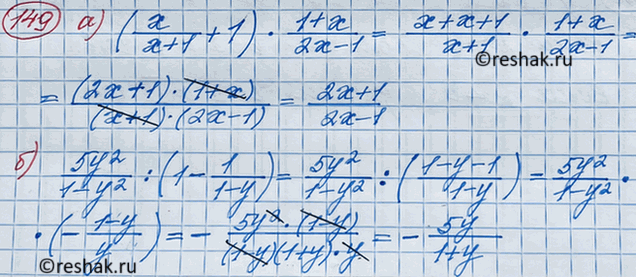 149 а) (x/(x+1) + 1) · (1+x)/(2x-1) = (x+x+1)/(x+1) · (1+x)/(2x-1) =
= ((2x+1)·(1+x))/((x+1)·(2x-1)) = (2x+1)/(2x-1)
б) 5y²/(1-y²) : (1 - 1/(1-y)) = 5y²/(1-y²) : ((1-y-1)/(1-y)) = 5y²/(1-y²) ·
· (-(1-y)/y) = - (5y²·(1-y))/((1-y)(1+y)·y) = - 5y/(1+y)
©reshak.ru
©reshak.ru